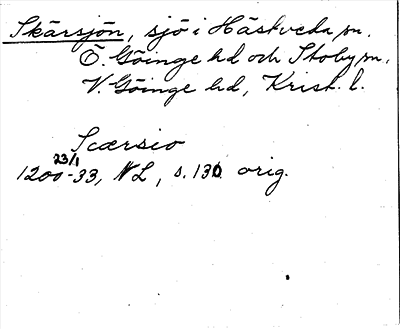 Skärsjön, sjö i Hästveda sn.
Ö. Göinge hd och Stoby sn,
V. Göinge hd, Krist. l.
Scærsio
23/1
1200-33, NL, s. 130 orig.